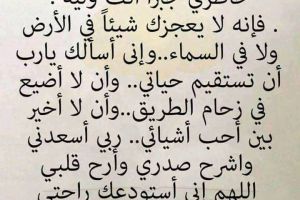 خاطري جاراً أنت وليه .
. فإنه لا يعجزك شيئاً في الأرض
ولا في السماء..وإنى أسألك يارب
أن تستقيم حياتي.. وأن لا أضيع
في زحام الطريق..وأن لا أخير
بين أحب أشيائي.. ربي أسعدني
واشرح صدري وأرح قلبي
اللهم إني أستودعك راحتي